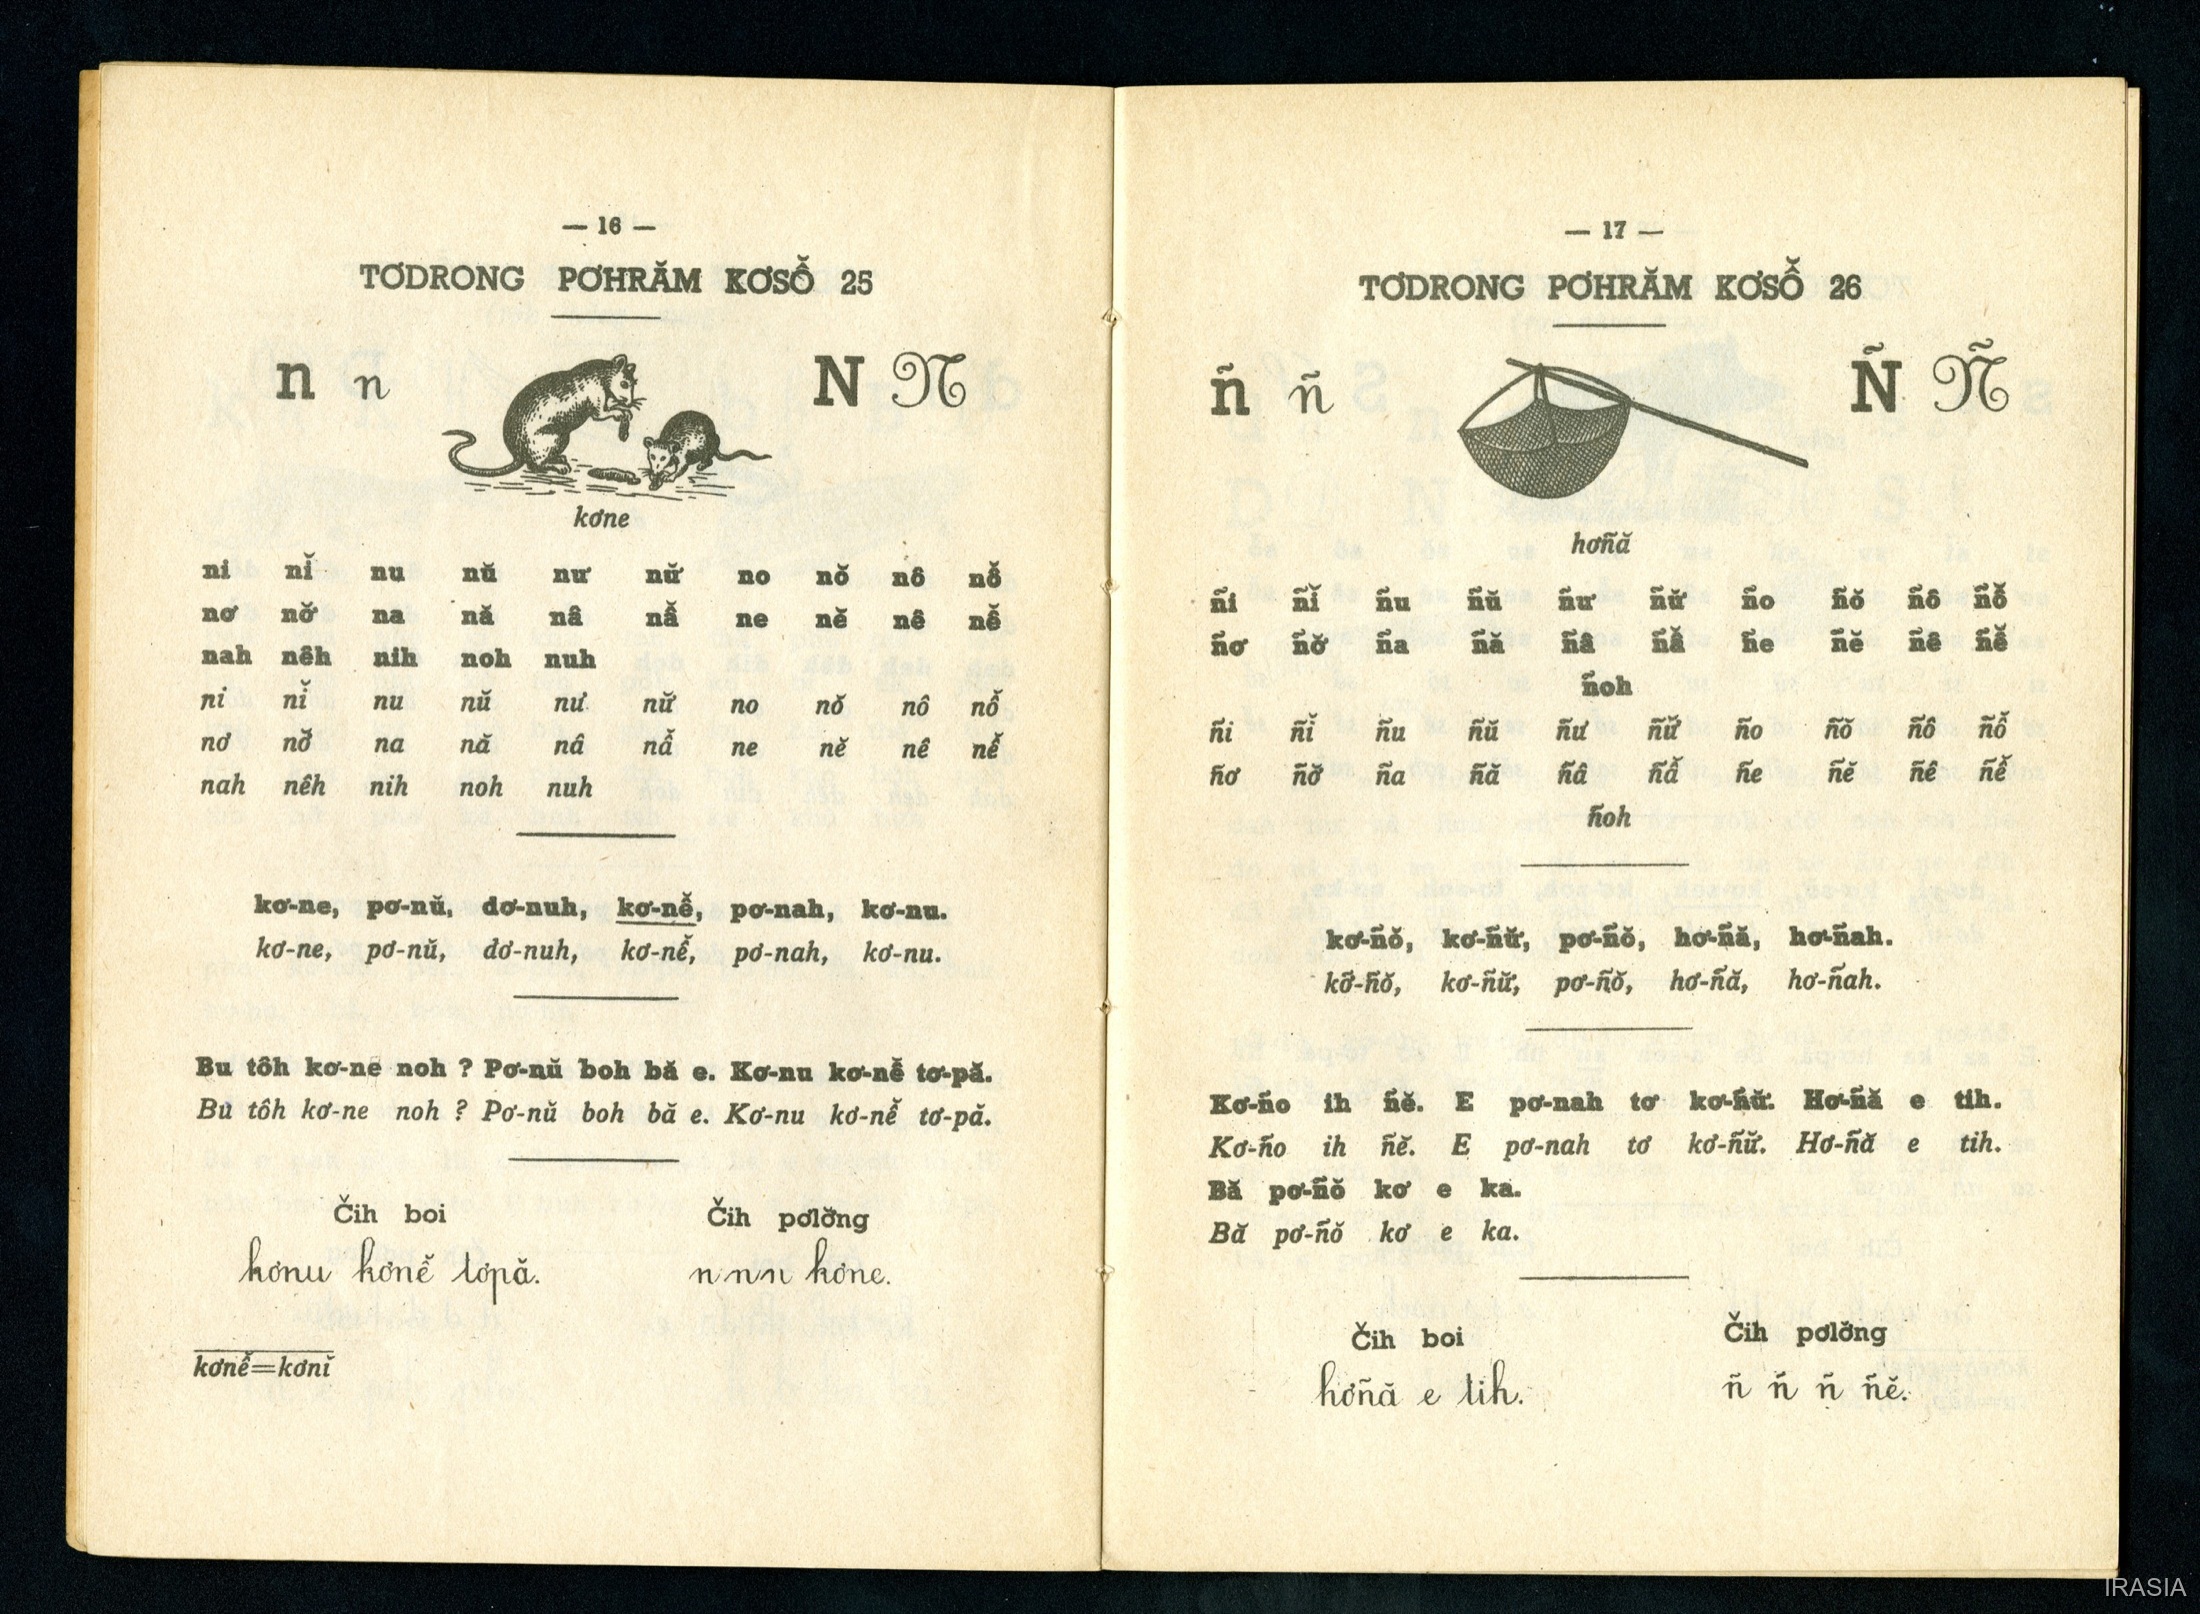 — 16 —
TƠDRONG PƠHRĂM KƠSÔ̆ 25
n n N N
kơne
ni nĭ nu nŭ nư nư̆ no nŏ nô nô̆
nơ nơ̆ na nă nâ nâ̆ ne nĕ nê nê̆
nah nêh nih noh nuh
ni nĭ nu nŭ nư nư̆ no nŏ nô nô̆
nơ nơ̆ na nă nâ nâ̆ ne nĕ nê nê̆
nah nêh nih noh nuh
kơ-ne, pơ-nŭ, dơ-nuh, kơ-nê̆, pơ-nah, kơ-nu.
kơ-ne, pơ-nŭ, dơ-nuh, kơ-nê̆, pơ-nah, kơ-nu.
Bu tôh kơ-ne noh ? Pơ-nŭ boh bă e. Kơ-nu kơ-nê̆ tơ-pă.
Bu tôh kơ-ne noh ? Pơ-nŭ boh bă e. Kơ-nu kơ-nê̆ tơ-pă.
Čih boi Čih pơlơ̆ng
kơnu kơnê̆ tơpă. n n n kơne.
kơnê̆=kơnĭ
— 17 —
TƠDRONG PƠHRĂM KƠSÔ̆ 26
ñ ñ Ñ Ñ
hơñă
ñi ñĭ ñu ñŭ ñư ñư̆ ño ñŏ ñô ñô̆
ñơ ñơ̆ ña ñă ñâ ñâ̆ ñe ñĕ ñê ñê̆
ñoh
ñi ñĭ ñu ñŭ ñư ñư̆ ño ñŏ ñô ñô̆
ñơ ñơ̆ ña ñă ñâ ñâ̆ ñe ñĕ ñê ñê̆
ñoh
kơ-ñŏ, kơ-ñư̆, pơ-ñŏ, hơ-ñă, hơ-ñah.
kơ̆-ñŏ, kơ-ñư̆, pơ-ñŏ, hơ-ñă, hơ-ñah.
Kơ-ño ih ñĕ. E pơ-nah tơ kơ-ñư̆. Hơ-ñă e tih.
Kơ-ño ih ñĕ. E pơ-nah tơ kơ-ñư̆. Hơ-ñă e tih.
Bă pơ-ñŏ kơ e ka.
Bă pơ-ñŏ kơ e ka.
Čih boi Čih pơlơ̆ng
hơñă e tih. ñ ñ ñ ñĕ.
IRASIA